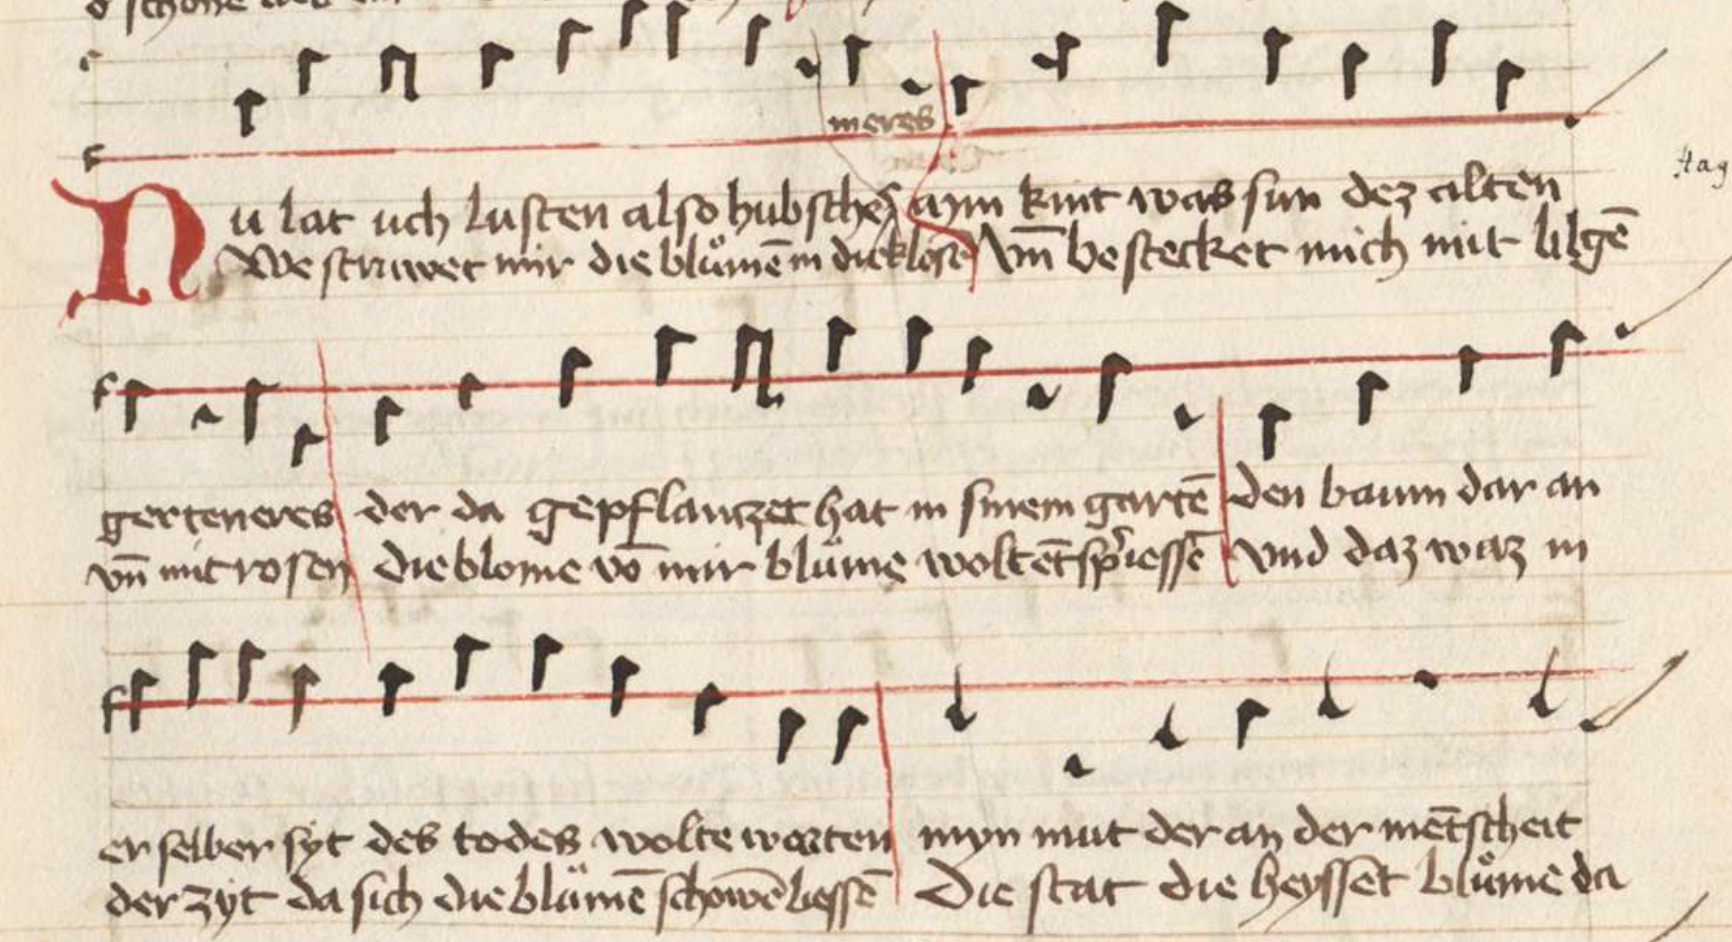 o schone
meres
tag
Nu lat uch lusten also hubsches aynn kint was sun dez alten
We struwet mir die blůmē in die klose Vm̄ bestecket mich mit lilgē
gerteneres der da gepflanczet hat in sinem gartē den baum dar an
vn̄ mit rosen die blome vō mir blůme wolt ētspriessē vnd daz waz in
er selber syt des todes wolte warten myn mut der an der mētscheit
der zyt da sich die blůmē schowē liessē Die stat die heyssēt blůme da